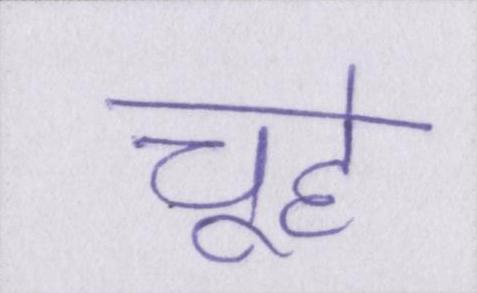 चूहे